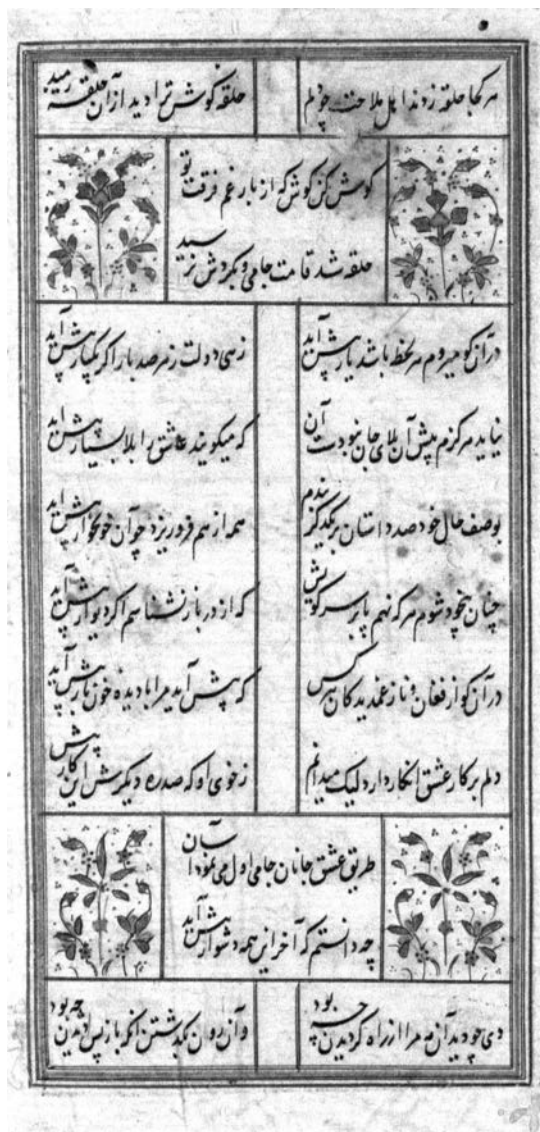 هر کجا حلقه زدند اهل ملاحت چو دلم
حلقه گوش ترا دید از آن حلقه رمید
گوش کن گوش که از بار غم فرقت تو
حلقه شد قامت جامی و بگردش نرسید
در آن کو میروم هر لحظه باشد یار پیش آید
زهی دولت ز هر صد بار اگر یکبار پیش آید
نیاید هرگزم پیش آن بلای جان نبودت آن
که میگویند عاشق را بلا بسیار پیش آید
بوصف حال خود صد داستان بر یکدگر بندم
همه از هم فرو ریزد چو آن خونخوار پیش آید
چنان بیخود شوم هر گه نهم پا بر سر کویش
که از در باز نشناسم اگر دیوار پیش آید
در آن کو از فغان و ناز غمدیدگان هر کس
که پیش آید مرا با دیده خون بار پیش آید
دلم بر کار عشق انکار دارد لیک میدانم
ز خوی او که صد ره دیگرش این کار پیش
طریق عشق جانان جامی اول می نمود آسان
چه دانستم که آخر این همه دشوار پیش آید
دی چو دید آن مه مرا از راه گردیدن چه بود
وآن روان بگذشتن آنگه باز پس دیدن چه بود